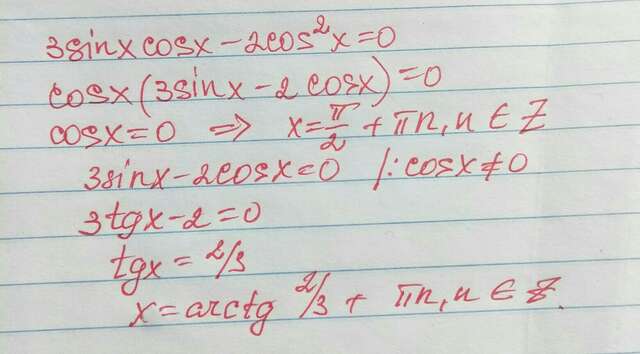 3sinx cosx - 2cos²x = 0
cosx(3sinx - 2cosx) = 0
cosx = 0 ⇒ x = π/2 + πn, n ∈ Z
3sinx - 2cosx = 0 /: cosx ≠ 0
3tgx - 2 = 0
tgx = 2/3
x = arctg 2/3 + πn, n ∈ Z.